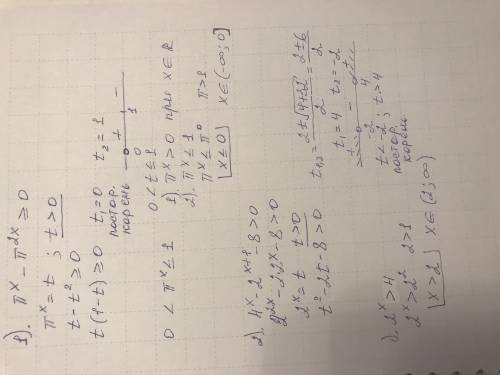 1). π^x − π^2x ≥ 0
π^x = t ; t > 0
t − t² ≥ 0
t(1−t) ≥ 0 t₁ = 0 t₂ = 1
постор. корень
− + −
0 1
0 < t ≤ 1
0 < π^x ≤ 1 1). π^x > 0 при x ∈ ℝ
2). π^x ≤ 1
π^x ≤ π^0 π > 1
x ≤ 0 x ∈ (−∞; 0]
2). 4^x − 2^x+1 − 8 > 0
2^2x − 2·2^x − 8 > 0
2^x = t t > 0
t² − 2t − 8 > 0 t₁,₂ = 2 ± √4+32 / 2 = 2 ± 6 / 2
t₁ = 4 t₂ = −2
+ − +
−2 4
t < −2 ; t > 4
постор. корень
2^x > 4
2^x > 2² 2 > 1
x > 2 x ∈ (2; ∞)